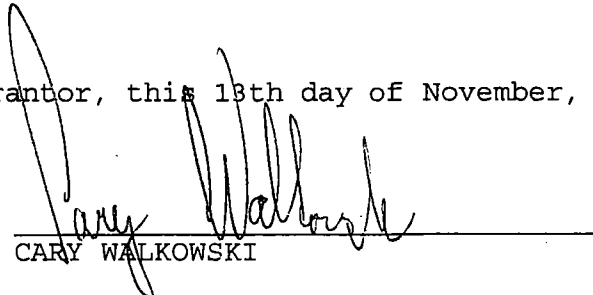 rantor, this 13th day of November,
Cary Walkowski
CARY WALKOWSKI